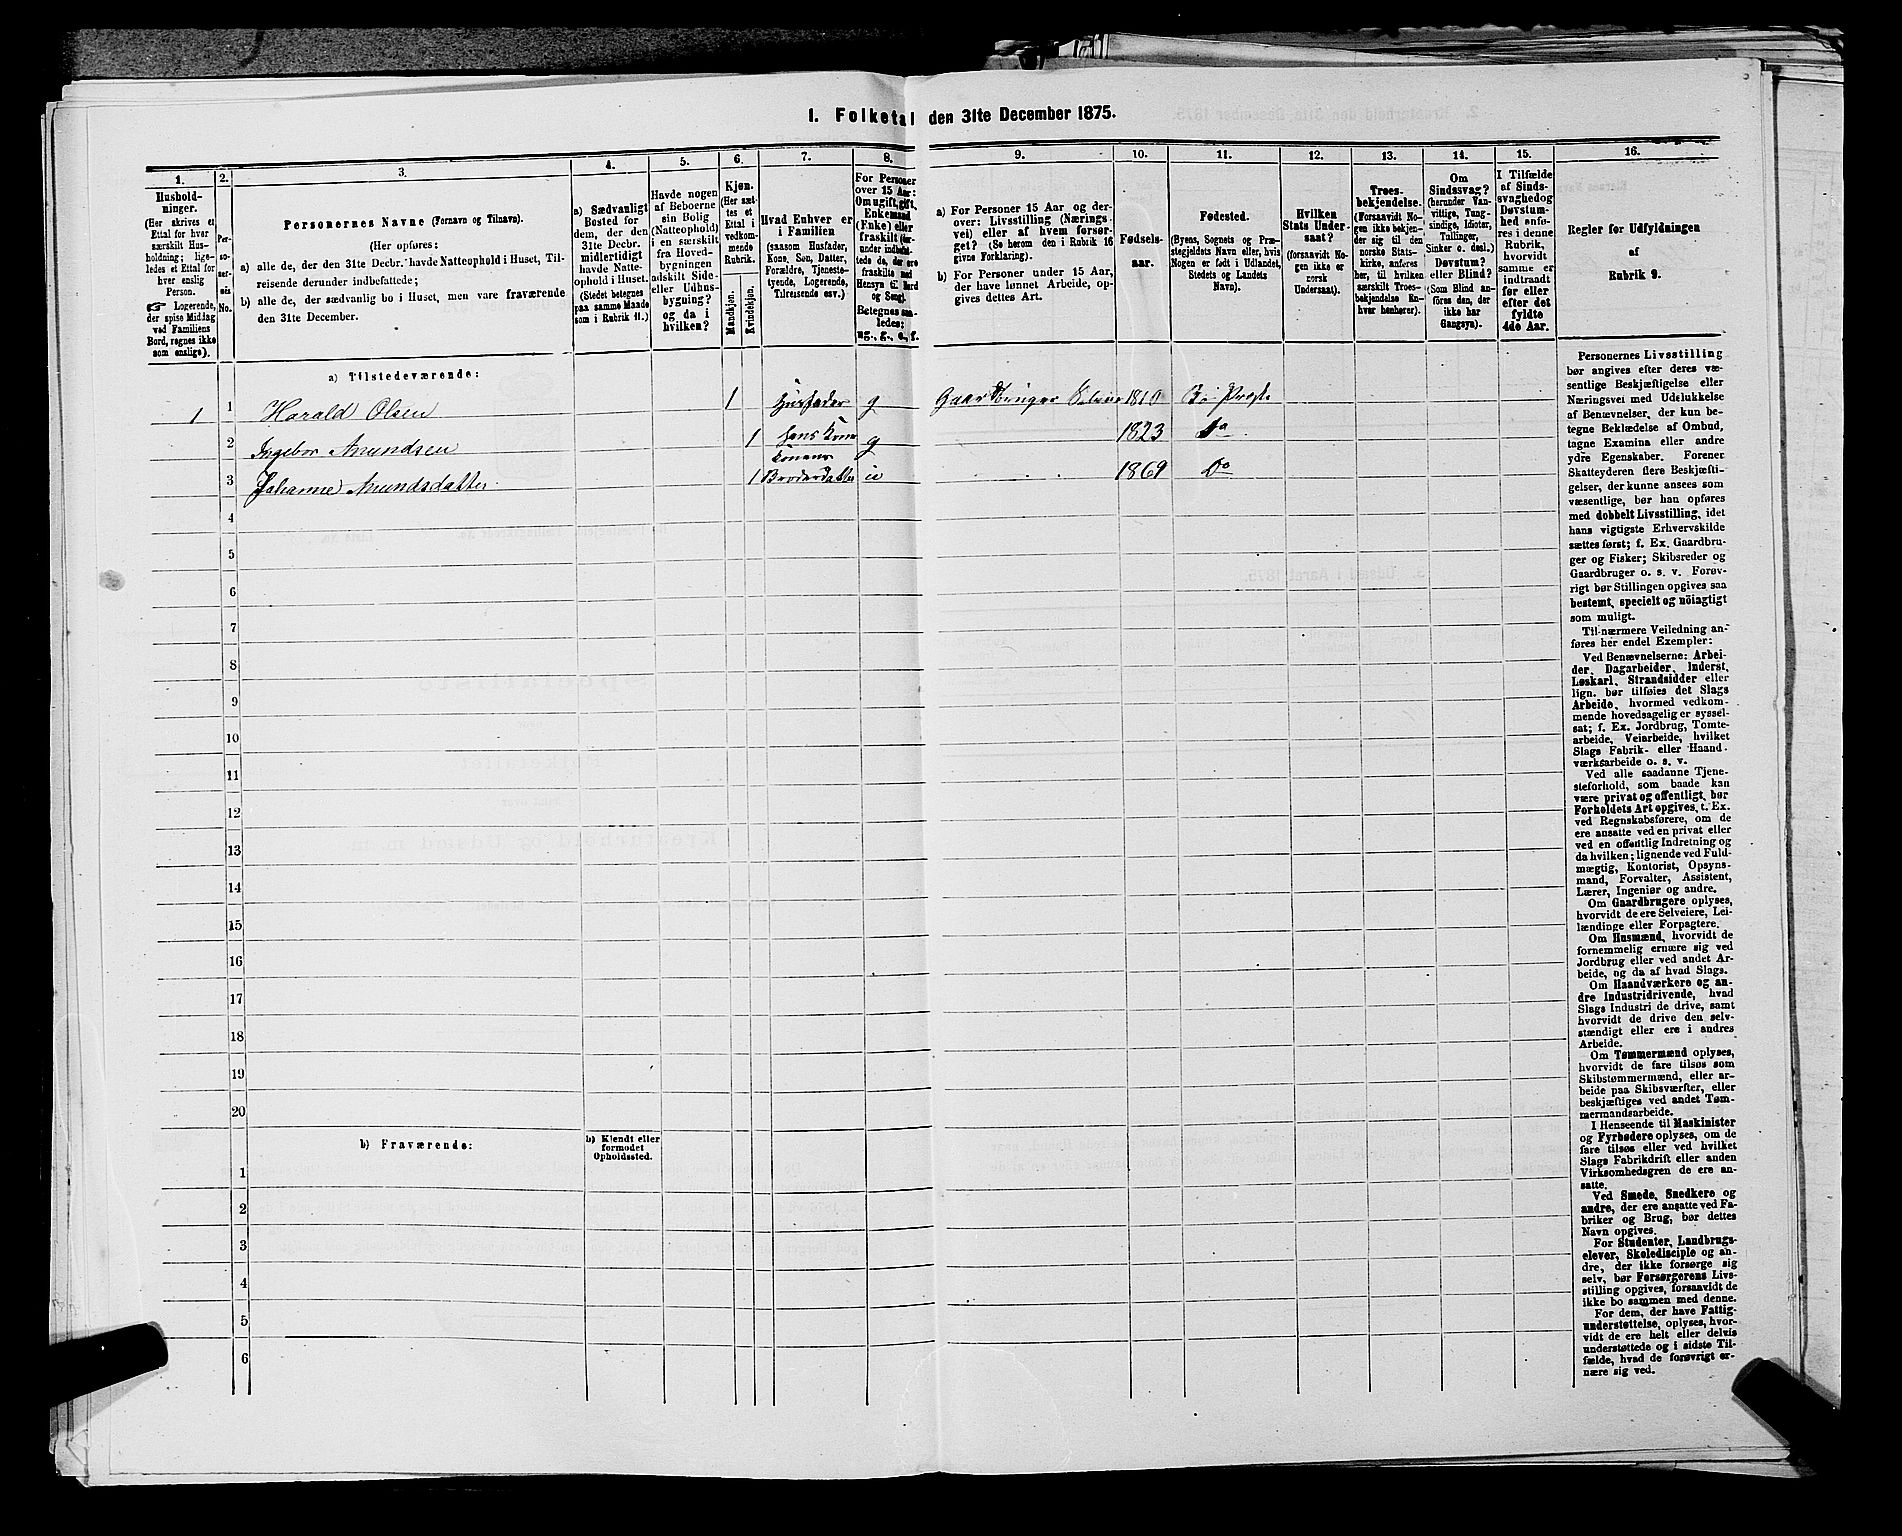 1. Folketal den 31te December 1875.
1. 2. 3. 4. 5. 6. 7. 8. 9. 10. 11. 12. 13. 14. 15. 16.
Hushold-
ninger.
(Her skrives et
Ettal for hver
særskilt Hus-
holdning; lige-
ledes et Ettal for
hver enslig
Person.
☞ Logerende,
der spise Middag
ved Familiens
Bord, regnes ikke
som enslige).
Per-
so-
ner-
nes
No.
Personernes Navne (Fornavn og Tilnavn).
(Her opføres:
a) alle de, der den 31te Decbr. havde Natteophold i Huset, Til-
reisende derunder indbefattede;
b) alle de, der sædvanlig bo i Huset, men vare fraværende
den 31te December.
a) Sædvanligt
Bosted for
dem, der den
31te Decbr.
midlertidigt
havde Natte-
ophold i Huset.
(Stedet betegnes
paa samme Maade
som i Rubrik 11.)
Havde nogen
af Beboerne
sin Bolig
(Natteophold)
i en særskilt
fra Hoved-
bygningen
adskilt Side-
eller Udhus-
bygning?
og da i
hvilken?
Kjøn.
(Her sæt-
tes et
Ettal i
vedkom-
mende
Rubrik.
Mandkjøn.
Kvindekjøn.
Hvad Enhver er
i Familien
(saasom Husfader,
Kone, Søn, Datter,
Forældre, Tjeneste-
tyende, Logerende,
Tilreisende osv.)
For Personer
over 15 Aar:
Om ugift, gift,
Enkemand
(Enke) eller
fraskilt (her-
under indbefat-
tede de, der ere
fraskilte med
Hensyn til Bord
og Seng).
Betegnes saa-
ledes:
ug., g., e., f.
a) For Personer 15 Aar og der-
over: Livsstilling (Nærings-
vei) eller af hvem forsør-
get? (Se herom den i Rubrik 16
givne Forklaring).
b) For Personer under 15 Aar,
der have lønnet Arbeide, op-
gives dettes Art.
Fødsels-
aar.
Fødested.
(Byens, Sognets og Præ-
stegjeldets Navn eller, hvis
Nogen er født i Udlandet,
Stedets og Landets
Navn).
Hvilken
Stats Under-
saat?
(forsaavidt No-
gen ikke er
norsk
Undersaat).
Troes-
bekjendelse.
(Forsaavidt No-
gen ikke bekjen-
der sig til den
norske Stats-
kirke, anføres
her, til hvilken
særskilt Troes-
bekjendelse En-
hver henhører).
Om
Sindssvag?
(herunder Van-
vittige, Tung-
sindige, Idioter,
Tullinger,
Sinker o. desl.)
Døvstum?
eller Blind?
(Som Blind an-
føres den, der
ikke har
Gangsyn).
I Tilfælde
af Sinds-
svaghed og
Døvstum-
hed anfø-
res i denne
Rubrik,
hvorvidt
samme er
indtraadt
før eller
efter det
fyldte
4de Aar.
Regler for Udfyldningen
af
Rubrik 9.
a) Tilstedeværende:
1 1 Harald Olsen 1 Husfader g Gaardbruger Selveier Bø Præste
2 Ingebor Amundsen 1 hans Kone g 1823 Do
3 Johanne Amundsdatter 1 Konens Broderdatter u 1869 Do
4
5
6
7
8
9
10
11
12
13
14
15
16
17
18
19
20
b) Fraværende:
b) Kjendt eller
formodet
Opholdssted.
1
2
3
4
5
6
Personernes Livsstilling
bør angives efter deres væ-
sentlige Beskjæftigelse eller
Næringsvei med Udelukkelse
af Benævnelser, der kun be-
tegne Beklædelse af Ombud,
tagne Examina eller andre
ydre Egenskaber. Forener
Skatteyderen flere Beskjæfti-
gelser, der kunne ansees som
væsentlige, bør han opføres
med dobbelt Livsstilling, idet
hans vigtigste Erhvervskilde
sættes først; f. Ex. Gaardbru-
ger og Fisker; Skibsreder og
Gaardbruger o. s. v. Forøv-
rigt bør Stillingen opgives saa
bestemt, specielt og nöiagtigt
som muligt.
Til nærmere Veiledning an-
føres her endel Exempler:
Ved Benævnelserne: Arbei-
der, Dagarbeider, Inderst,
Løskarl, Strandsidder eller
lign. bør tilføies det Slags
Arbeide, hvormed vedkom-
mende hovedsagelig er syssel-
sat; f. Ex. Jordbrug, Tomte-
arbeide, Veiarbeide, hvilket
Slags Fabrik- eller Haand-
værksarbeide o. s. v.
Ved alle saadanne Tjene-
steforhold, som baade kan
være privat og offentligt, bør
Forholdets Art opgives, f. Ex.
ved Regnskabsførere, om de
ere ansatte ved en privat eller
ved en offentlig Indretning og
da hvilken; lignende ved Fuld-
mægtig, Kontorist, Opsyns-
mand, Forvalter, Assistent,
Lærer, Ingeniør og andre.
Om Gaardbrugere oplyses,
hvorvidt de ere Selveiere, Lei-
lændinge eller Forpagtere.
Om Husmænd, hvorvidt de
fornemmelig ernære sig ved
Jordbrug eller ved andet Ar-
beide, og da af hvad Slags.
Om Haandværkere og an-
dre Industridrivende, hvad
Slags Industri de drive, samt
hvorvidt de drive den selv-
stændigt eller ere i andres
Arbeide.
Om Tømmermænd oplyses,
hvorvidt de fare tilsøs som
Skibstømmermænd, eller ar-
beide paa Skibsværfter, eller
beskjæftiges ved andet Tøm-
mermandsarbeide.
I Henseende til Maskinister
og Fyrbødere oplyses, om de
fare tilsøs eller ved hvilket
Slags Fabrikdrift eller anden
Virksomhedsgren de ere an-
satte.
Ved Smede, Snedkere og
andre, der ere ansatte ved Fa-
briker og Brug, bør dettes
Navn opgives.
For Studenter, Landbrugs-
elever, Skoledisciple og an-
dre, der ikke forsørge sig
selv, bør Forsørgerens Livs-
stilling opgives, forsaavidt de
ikke bo sammen med denne.
For dem, der have Fattig-
understøttelse, oplyses, hvor-
vidt de ere helt eller delvis
understøttede og i sidste Til-
fælde, hvad de forøvrigt er-
nære sig ved.